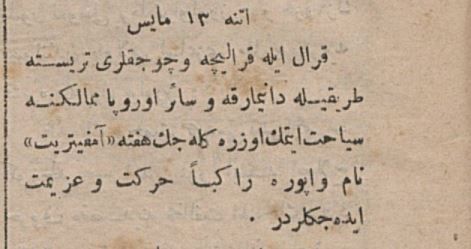 اتنه ١٣ مايس
قرال ايله قراليچه وچوجقلری تريسته
طريقيله دانيمارقه و سائر اوروپا ممالكنه
سياحت ايتمك اوزره كله جك هفته «آمفيتريت»
نام واپوره راكباً حركت و عزيمت
ايده جكلردر .